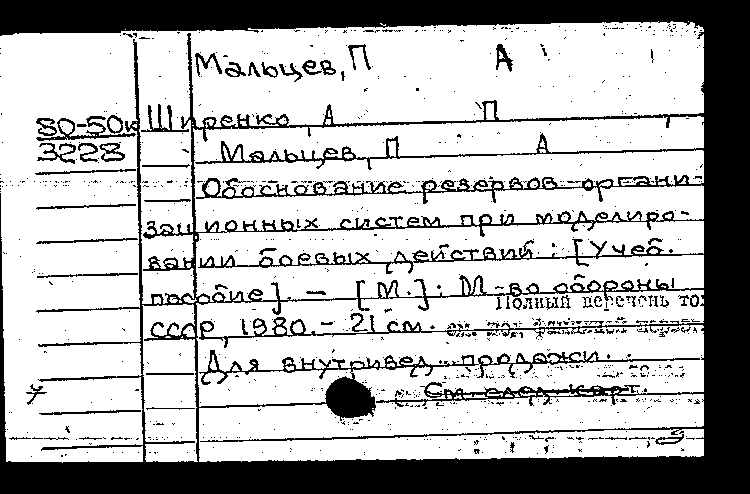 Мальцев, П А
80-50к Ширенко, А П
3228 Мальцев, П А
Обоснование резервов органи-
зационных систем при моделиро-
вании боевых действий : [Учеб.
пособие]. — [М.] : М-во обороны
Полный перечень
СССР, 1980. - 21 см.
Для внутривед. продажи.
См. след. карт.